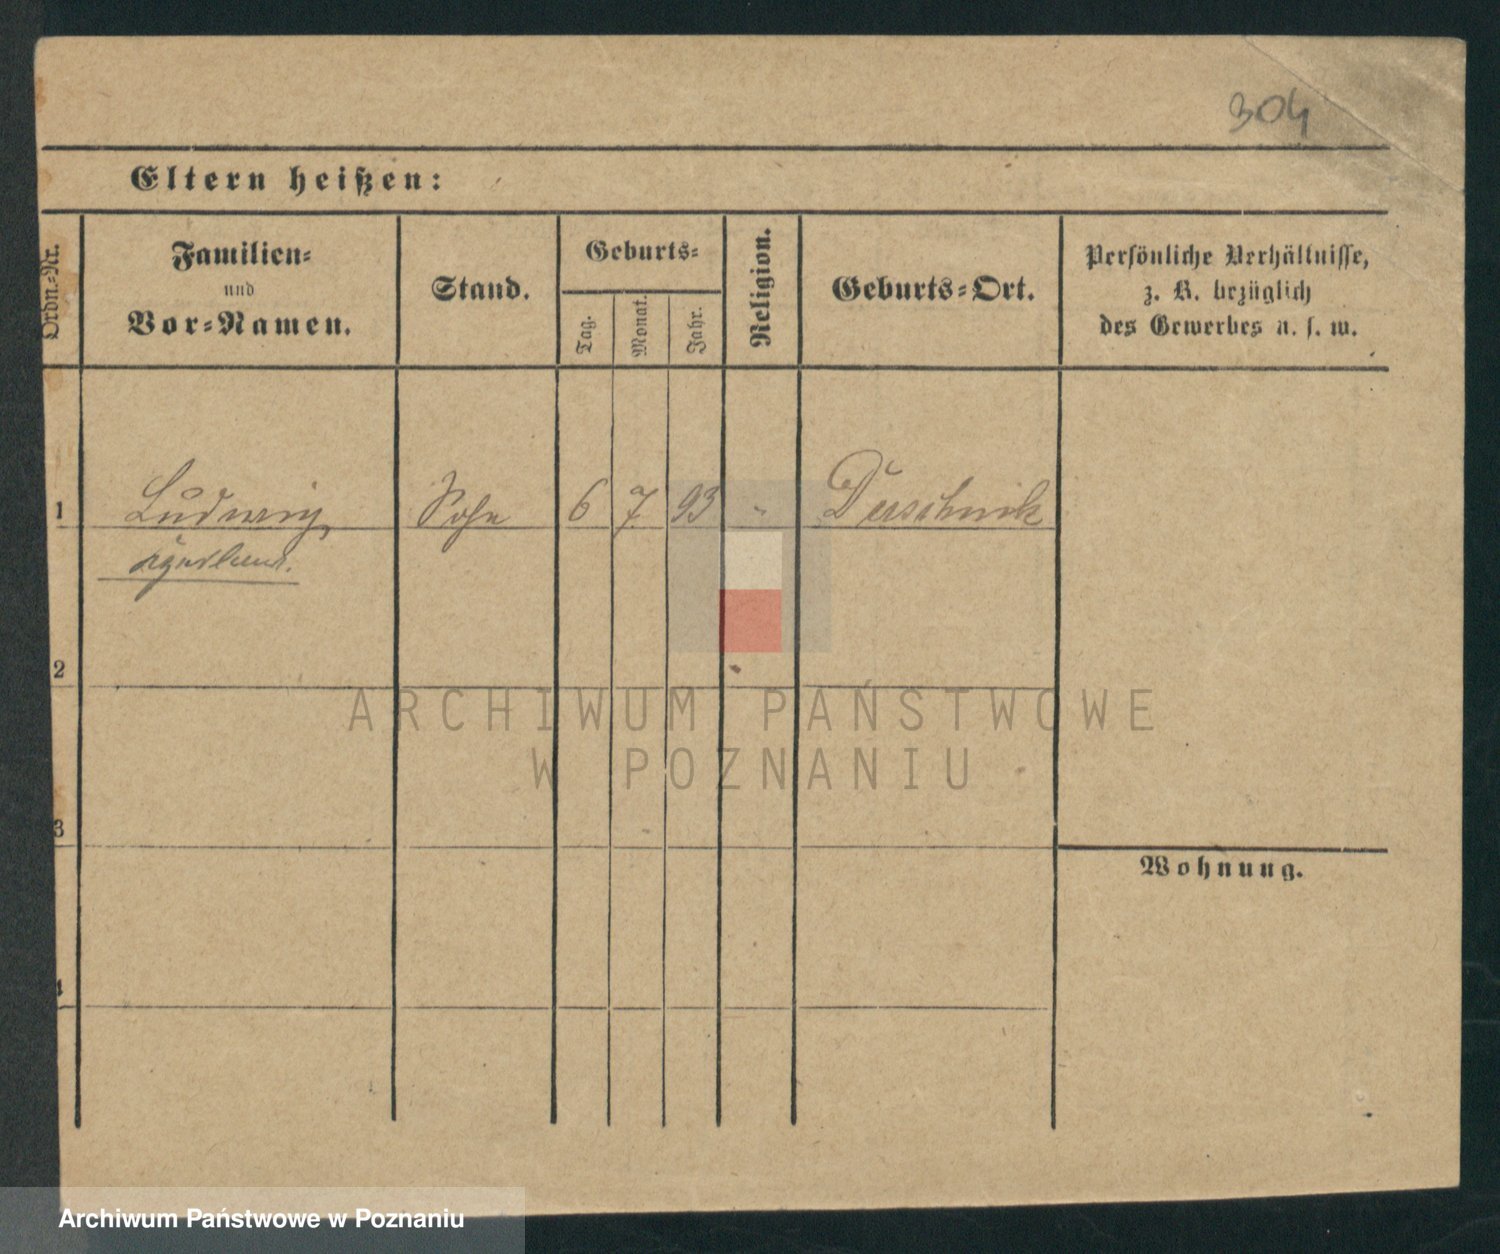 304
Eltern heißen:
Ordn.-Nr.
Familien-
und
Vor-Namen.
Stand.
Geburts-
Tag.
Monat.
Jahr.
Religion.
Geburts-Ort.
Persönliche Verhältnisse,
z. B. bezüglich
des Gewerbes u. s. w.
1 Ludwig Sohn 6 7 93 " Duschnik
2
3
4
Wohnung.
ARCHIWUM PAŃSTWOWE
W POZNANIU
Archiwum Państwowe w Poznaniu